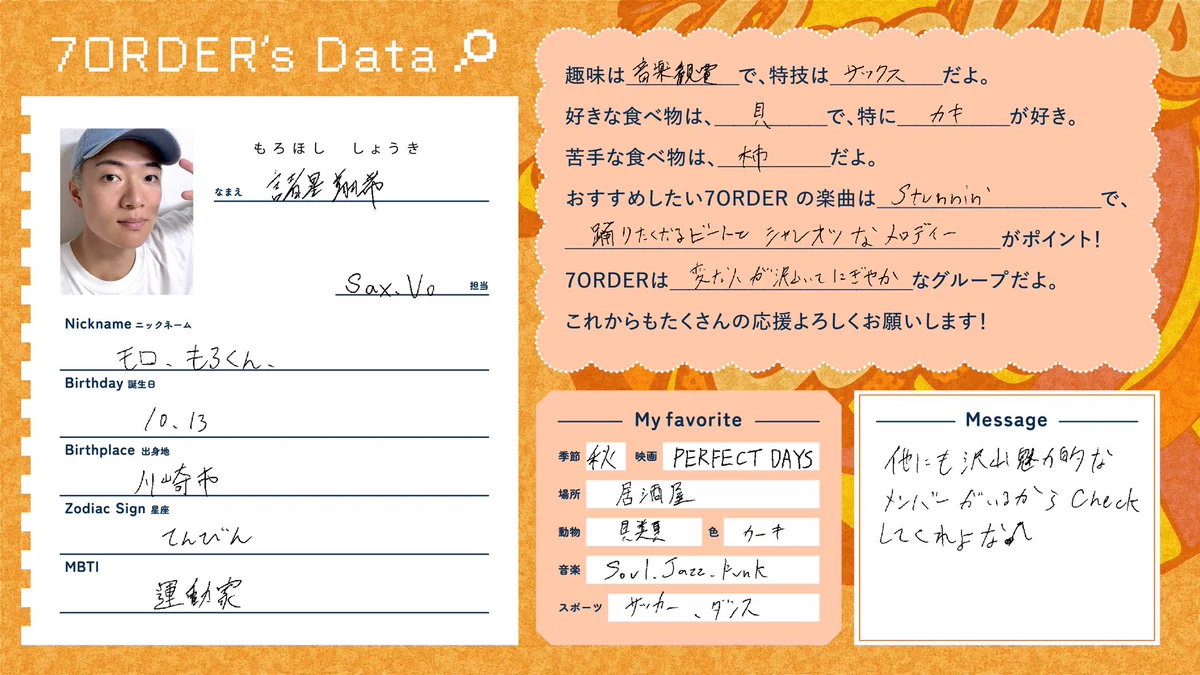 7ORDER's Data
もろほし しょうき
なまえ 諸星翔希
Sax、Vo 担当
Nickname ニックネーム
モロ、もろくん、
Birthday 誕生日
10.13
Birthplace 出身地
川崎市
Zodiac Sign 星座
てんびん
MBTI
運動家
趣味は音楽観賞で、特技はサックスだよ。
好きな食べ物は、貝で、特にカキが好き。
苦手な食べ物は、柿だよ。
おすすめしたい7ORDER の楽曲はStunnin'で、
踊りたくなるビートとシャレオツなメロディーがポイント!
7ORDERは変な人が沢山いてにぎやかなグループだよ。
これからもたくさんの応援よろしくお願いします!
My favorite
季節 秋 映画 PERFECT DAYS
場所 居酒屋
動物 色 カーキ
音楽 Soul.Jazz.Funk
スポーツ サッカー、ダンス
Message
他にも沢山魅力的な
メンバーがいるからCheck
してくれよな♪